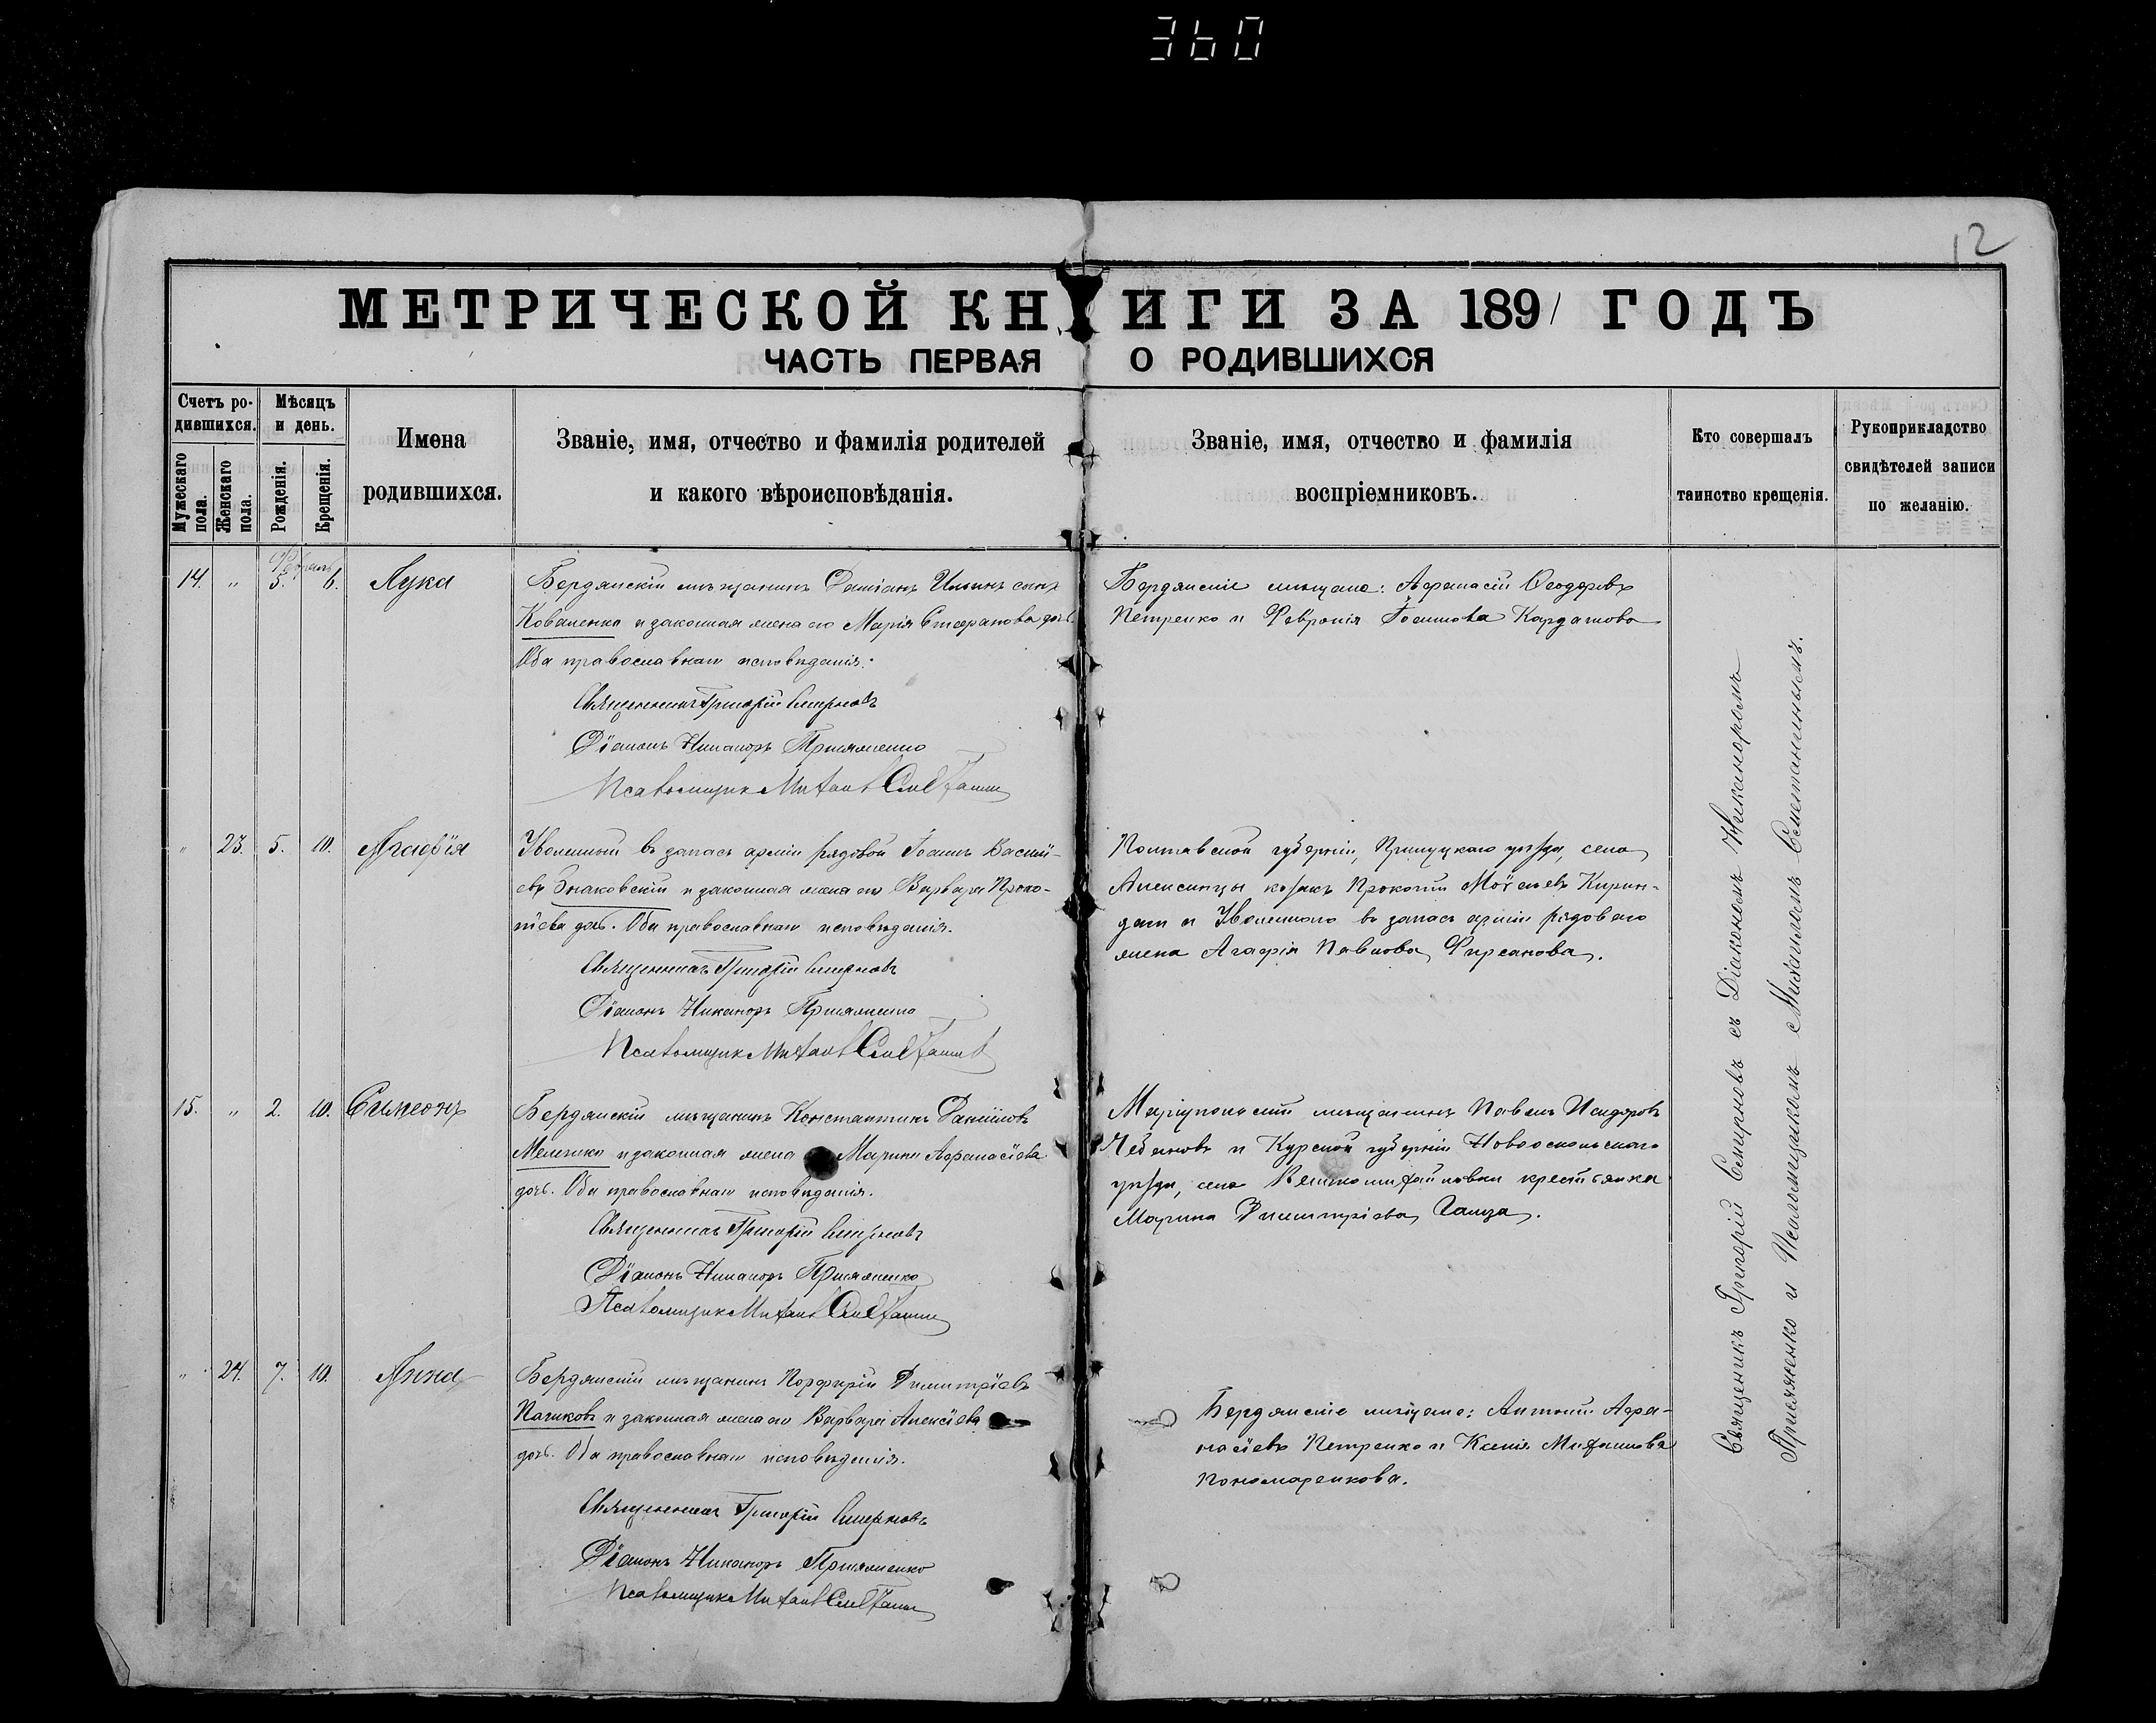 360
12
МЕТРИЧЕСКОЙ КНИГИ ЗА 1891 ГОДЪ
ЧАСТЬ ПЕРВАЯ О РОДИВШИХСЯ
Счетъ ро-
дившихся.
Мѣсяцъ
и день.
Мужескаго
пола.
Женскаго
пола.
Рожденія.
Крещенія.
Имена
родившихся.
Званіе, имя, отчество и фамилія родителей
и какого вѣроисповѣданія.
Званіе, имя, отчество и фамилія
воспріемниковъ.
Кто совершалъ
таинство крещенія.
Рукоприкладство
свидѣтелей записи
по желанію.
Февраль
14. " 5. 6. Лука
Бердянскій мѣщанинъ Даміанъ Ильинъ сынъ
Коваленко и законная жена его Марія Стефанова дочь.
Оба православнаго исповѣданія.
Священникъ Григорій Смирновъ
Діаконъ Никаноръ Присяженко
Псаломщикъ Михаилъ
Бердянскіе мѣщане: Афанасій Ѳеодоровъ
Петренко и Февронія Іоаннова Кардашова
" 23. 5. 10. Агафія
Уволенный въ запасъ арміи рядовой Іоаннъ Василі-
евъ Знаковскій и законная жена его Варвара Проко-
піева дочь. Оба православнаго исповѣданія.
Священникъ Григорій Смирновъ
Діаконъ Никаноръ Присяженко
Псаломщикъ Михаилъ
Полтавской губерніи, Прилуцкаго уѣзда, села
Алексинцы козакъ Прокопій Моѵсеевъ Кирин-
даш и Уволеннаго въ запасъ арміи рядоваго
жена Агафія Павлова Фирсанова.
15. " 2. 10. Симеонъ
Бердянскій мѣщанинъ Константинъ Даніиловъ
Меленко и законная жена Марина Афанасіева
дочь. Оба православнаго исповѣданія.
Священникъ Григорій Смирновъ
Діаконъ Никаноръ Присяженко
Псаломщикъ Михаилъ
Маріупольскій мѣщанинъ Павелъ Исидоровъ
Чебановъ и Курской губерніи Новооскольскаго
уѣзда, села Великомихайловки крестьянка
Марина Димитріева
" 24. 7. 10. Анна
Бердянскій мѣщанинъ Порфирій Димитріевъ
Пачиковъ и законная жена его Варвара Алексіева
дочь. Оба православнаго исповѣданія.
Священникъ Григорій Смирновъ
Діаконъ Никаноръ Присяженко
Псаломщикъ Михаилъ
Бердянскіе мѣщане: Антоній Афа-
насіевъ Петренко и Ксенія Михаилова
Пономаренкова.
Священникъ Григорій Смирновъ съ Діакономъ Никаноромъ
Присяженко и Псаломщикомъ Михаиломъ